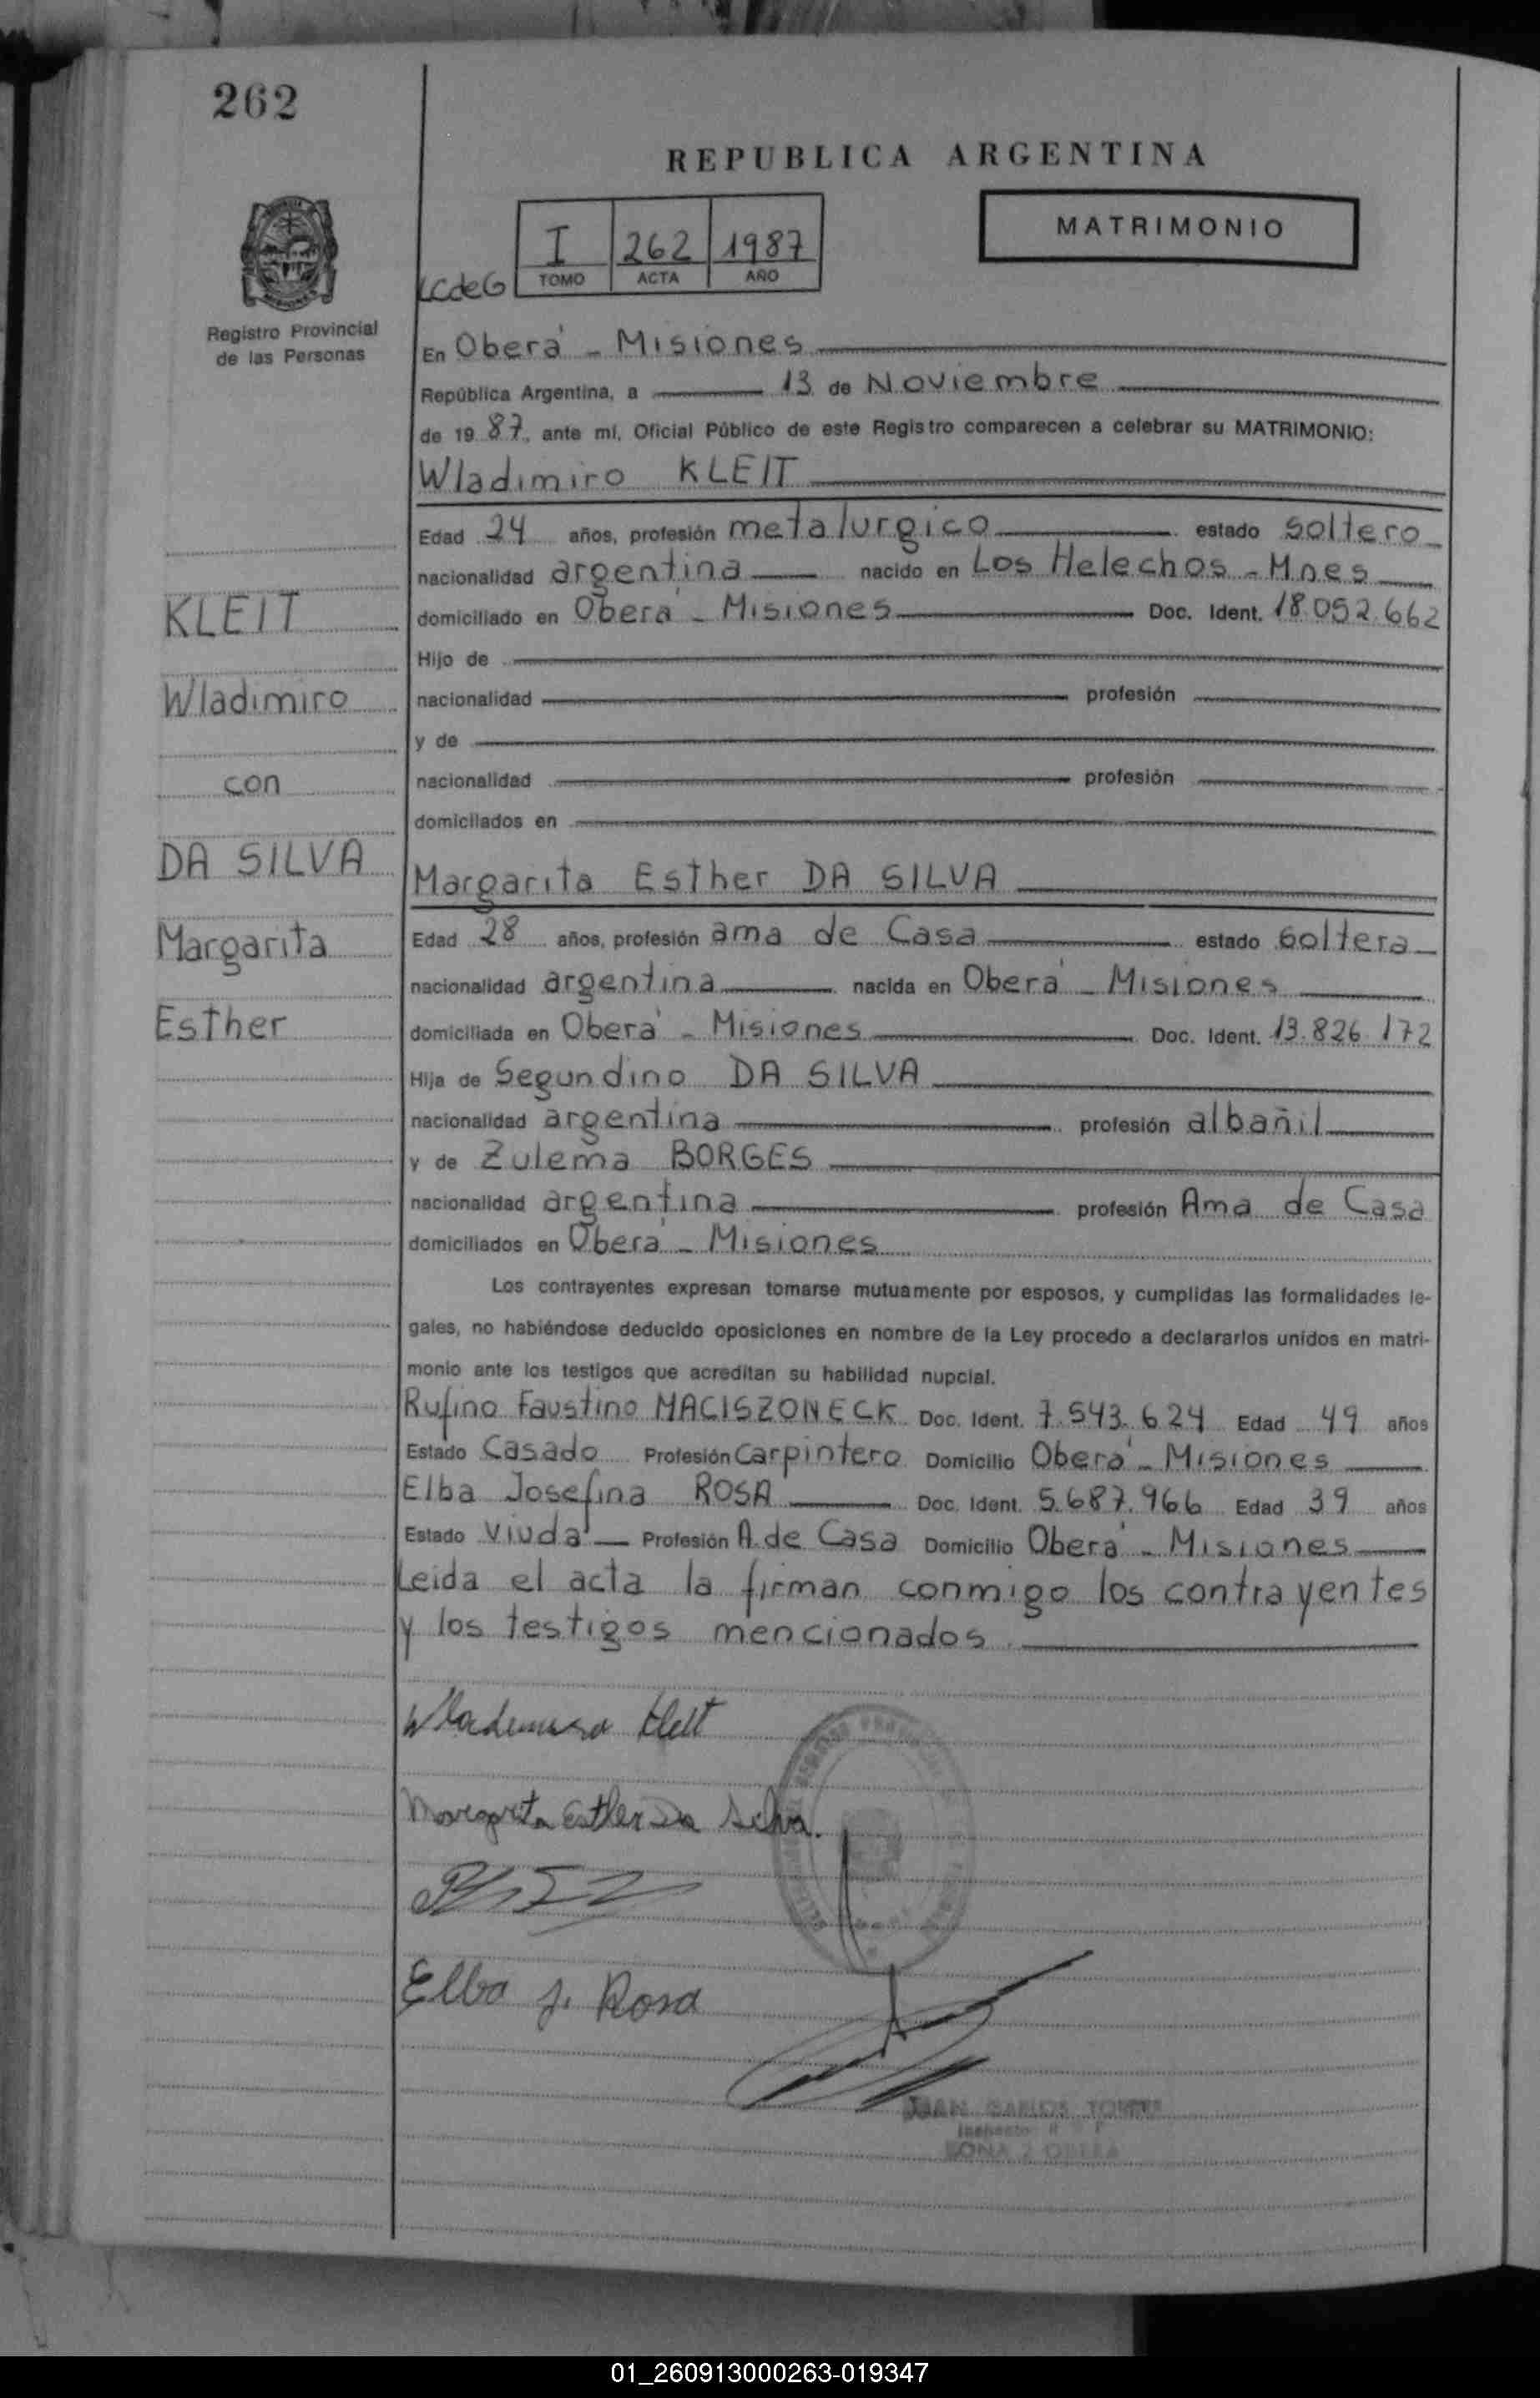 262
REPUBLICA ARGENTINA
MATRIMONIO
I 262 1987
TOMO ACTA AÑO
LCdeG
Registro Provincial
de las Personas
En Oberá - Misiones
República Argentina, a 13 de Noviembre
de 1987, ante mí, Oficial Público de este Registro comparecen a celebrar su MATRIMONIO:
Wladimiro KLEIT
Edad 24 años, profesión metalurgico estado soltero
nacionalidad argentina nacido en Los Helechos - Mnes
domiciliado en Oberá - Misiones Doc. Ident. 18.052.662
Hijo de
nacionalidad profesión
y de
nacionalidad profesión
domicilados en
KLEIT
Wladimiro
con
DA SILVA
Margarita
Esther
Margarita Esther DA SILVA
Edad 28 años, profesión ama de Casa estado soltera
nacionalidad argentina nacida en Oberá - Misiones
domiciliada en Oberá - Misiones Doc. Ident. 13.826.172
Hija de Segundino DA SILVA
nacionalidad argentina profesión albañil
y de Zulema BORGES
nacionalidad argentina profesión Ama de Casa
domiciliados en Oberá - Misiones
Los contrayentes expresan tomarse mutuamente por esposos, y cumplidas las formalidades le-
gales, no habiéndose deducido oposiciones en nombre de la Ley procedo a declararlos unidos en matri-
monio ante los testigos que acreditan su habilidad nupcial.
Rufino Faustino MACISZONECK Doc. Ident. 7.543.624 Edad 49 años
Estado Casado Profesión Carpintero Domicilio Oberá - Misiones
Elba Josefina ROSA Doc. Ident. 5.687.966 Edad 39 años
Estado Viuda Profesión A. de Casa Domicilio Oberá - Misiones
Leida el acta la firman conmigo los contrayentes
y los testigos mencionados
Wladimiro Kleit
Margarita Esther Da Silva.
Elba J. Rosa
JUAN CARLOS
ZONA 2 OBERA
01_260913000263-019347